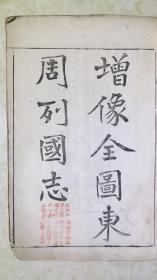 增像全圖東
周列國志